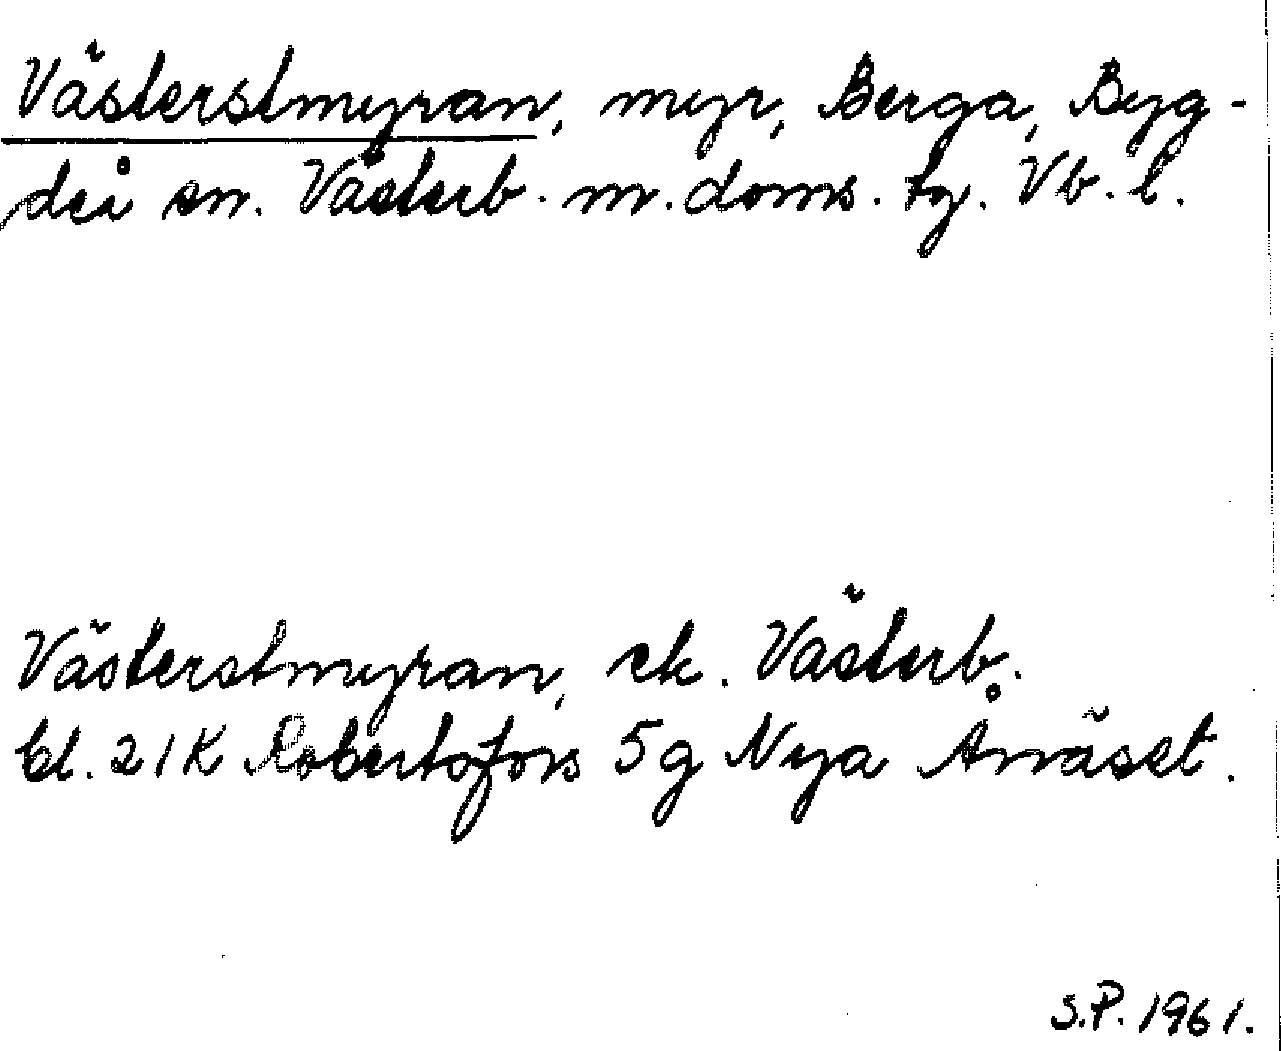 Västerstmyran, myr, Berga, Byg-
deå sn. Västerb. m. doms. tg. Vb. l.
Västerstmyran, ek. Västerb.
bl. 21K Robertsfors 5g Nya Ånäset.
S.P. 1961.